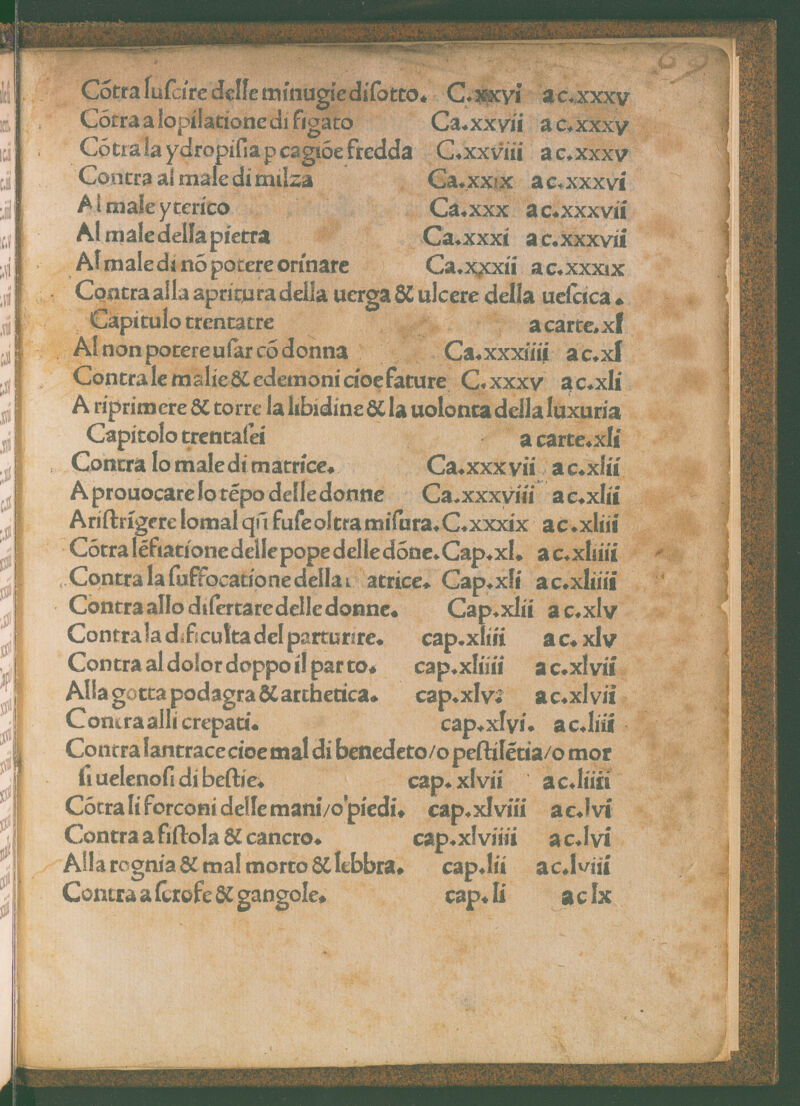 69
Cótra luſcire delle minugie diſotto. C.xxvi ac.xxxv
Cótra a lopilatione di figato Ca.xxvii ac.xxxv
Cótra la ydropiſia p cagióe fredda C.xxviii ac.xxxv
Contra al male di milza Ca.xxix ac.xxxvi
Al male yterico Ca.xxx ac.xxxvii
Al male della pietra Ca.xxxi ac.xxxvii
Al male di nó potere orinare Ca.xxxii ac.xxxix
Contra alla apritura della uerga & ulcere della ueſcica.
Capitulo trentatre a carte.xl
Al non potere uſar có donna Ca.xxxiiii ac.xl
Contra le malie & edemoni cioe fature C.xxxv ac.xli
A riprimere & torre la libidine & la uolonta della luxuria
Capitolo trentaſei a carte.xli
Contra lo male di matrice. Ca.xxxvii ac.xlii
A prouocare lo tépo delle donne Ca.xxxviii ac.xlii
A riſtrigere lo mal qñ fuſe oltra miſura. C.xxxix ac.xliii
Cótra léfiatione delle pope delle dóne. Cap.xl. ac.xliiii
Contra la ſuffocatione della atrice. Cap.xli ac.xliiii
Contra allo diſertare delle donne. Cap.xlii ac.xlv
Contra la dificulta del parturire. cap.xliii ac.xlv
Contra al dolor doppo il parto. cap.xliiii ac.xlvii
Alla gotta podagra & arthetica. cap.xlv: ac.xlvii
Contra alli crepati. cap.xlvi. ac.liii
Contra lantrace cioe mal di benedeto/o peſtilétia/o mor
ſi uelenoſi di beſtie. cap.xlvii ac.liiii
Cótra li forconi delle mani/o piedi. cap.xlviii ac.lvi
Contra a fiſtola & cancro. cap.xlviiii ac.lvi
Alla rognia & mal morto & lebbra. cap.lii ac.lviii
Contra a ſcrofe & gangole. cap.li ac lx